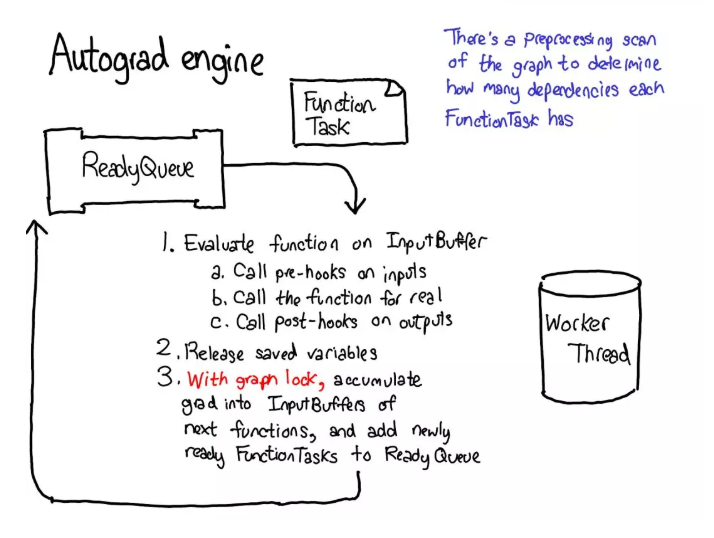 Autograd engine
There's a preprocessing scan
of the graph to determine
how many dependencies each
FunctionTask has
Function
Task
ReadyQueue
1. Evaluate function on InputBuffer
a. Call pre-hooks on inputs
b. Call the function for real
c. Call post-hooks on outputs
2. Release saved variables
3. With graph lock, accumulate
grad into InputBuffers of
next functions, and add newly
ready FunctionTasks to ReadyQueue
Worker
Thread